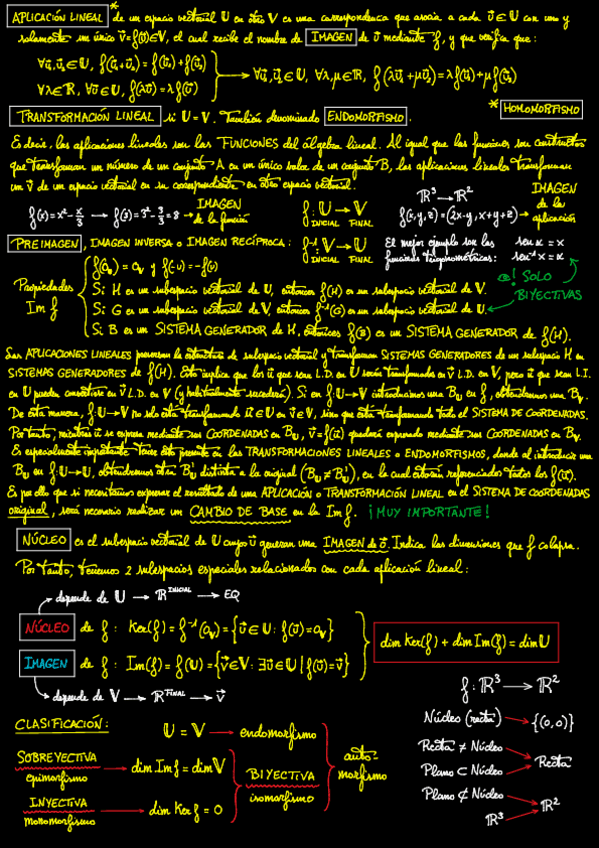 APLICACIÓN LINEAL* de un espacio vectorial U en otro V es una correspondencia que asocia a cada ū∈U con uno y
solamente un único v̄=f(ū)∈V, el cual recibe el nombre de IMAGEN de ū mediante f, y que verifica que:
∀ū₁,ū₂∈U, f(ū₁+ū₂)=f(ū₁)+f(ū₂)
∀λ∈ℝ, ∀ū∈U, f(λū)=λf(ū)
∀ū₁,ū₂∈U, ∀λ,μ∈ℝ, f(λū₁+μū₂)=λf(ū₁)+μf(ū₂)
TRANSFORMACIÓN LINEAL si U=V. También denominado ENDOMORFISMO.
*HOMOMORFISMO
Es decir, las aplicaciones lineales son las FUNCIONES del álgebra lineal. Al igual que las funciones son constructos
que transforman un número de un conjunto A en un único valor de un conjunto B, las aplicaciones lineales transforman
un v̄ de un espacio vectorial en su correspondiente en otro espacio vectorial.
f(x)=x²-x/3 → f(3)=3²-3/3=8 → IMAGEN de la función
f: U → V
INICIAL FINAL
ℝ³ → ℝ²
f(x,y,z)=(2x-y, x+y+z) → IMAGEN de la aplicación
PREIMAGEN, IMAGEN INVERSA o IMAGEN RECÍPROCA:
f⁻¹: V → U
INICIAL FINAL
El mejor ejemplo son las funciones trigonométricas:
sen x = x
sen⁻¹ x = x
¡SOLO BIYECTIVAS
Propiedades Im f
f(0ᵤ)=0ᵥ y f(-ū)=-f(ū)
Si H es un subespacio vectorial de U, entonces f(H) es un subespacio vectorial de V.
Si G es un subespacio vectorial de V, entonces f⁻¹(G) es un subespacio vectorial de U.
Si B es un SISTEMA GENERADOR de H, entonces f(B) es un SISTEMA GENERADOR de f(H).
Las APLICACIONES LINEALES preservan la estructura de subespacio vectorial y transforman SISTEMAS GENERADORES de un subespacio H en
SISTEMAS GENERADORES de f(H). Esto implica que los ū que sean L.D. en U serán transformados en v̄ L.D. en V, pero ū que sean L.I.
en U pueden convertirse en v̄ L.D. en V (y habitualmente sucederá). Si en f: U→V introducimos una Bᵤ en f, obtendremos una Bᵥ.
De esta manera, f: U→V no solo está transformando ū∈U en v̄∈V, sino que está transformando todo el SISTEMA DE COORDENADAS.
Por tanto, mientras ū se expresa mediante sus COORDENADAS en Bᵤ, v̄=f(ū) quedará expresado mediante sus COORDENADAS en Bᵥ.
Es especialmente importante tener esto presente en las TRANSFORMACIONES LINEALES o ENDOMORFISMOS, donde al introducir una
Bᵤ en f: U→U, obtendremos otra B'ᵤ distinta a la original (Bᵤ≠B'ᵤ), en la cual estarán referenciados todos los f(ū).
Es por ello que si necesitamos expresar el resultado de una APLICACIÓN o TRANSFORMACIÓN LINEAL en el SISTEMA DE COORDENADAS
original, será necesario realizar un CAMBIO DE BASE en la Im f. ¡MUY IMPORTANTE!
NÚCLEO es el subespacio vectorial de U cuyos ū generan una IMAGEN de 0̄. Indica las dimensiones que f colapsa.
Por tanto, tenemos 2 subespacios especiales relacionados con cada aplicación lineal:
depende de U → ℝ^INICIAL → EQ
NÚCLEO de f: Ker(f)=f⁻¹(0ᵥ)={ū∈U: f(ū)=0ᵥ}
IMAGEN de f: Im(f)=f(U)={v̄∈V: ∃ū∈U | f(ū)=v̄}
dim Ker(f) + dim Im(f) = dim U
depende de V → ℝ^FINAL → v̄
f: ℝ³ → ℝ²
Núcleo (recta) → {(0,0)}
Recta ≠ Núcleo
Plano ⊂ Núcleo
Recta
Plano ⊄ Núcleo
ℝ³
ℝ²
CLASIFICACIÓN:
U = V → endomorfismo
SOBREYECTIVA
epimorfismo
dim Im f = dim V
INYECTIVA
monomorfismo
dim Ker f = 0
BIYECTIVA
isomorfismo
automorfismo